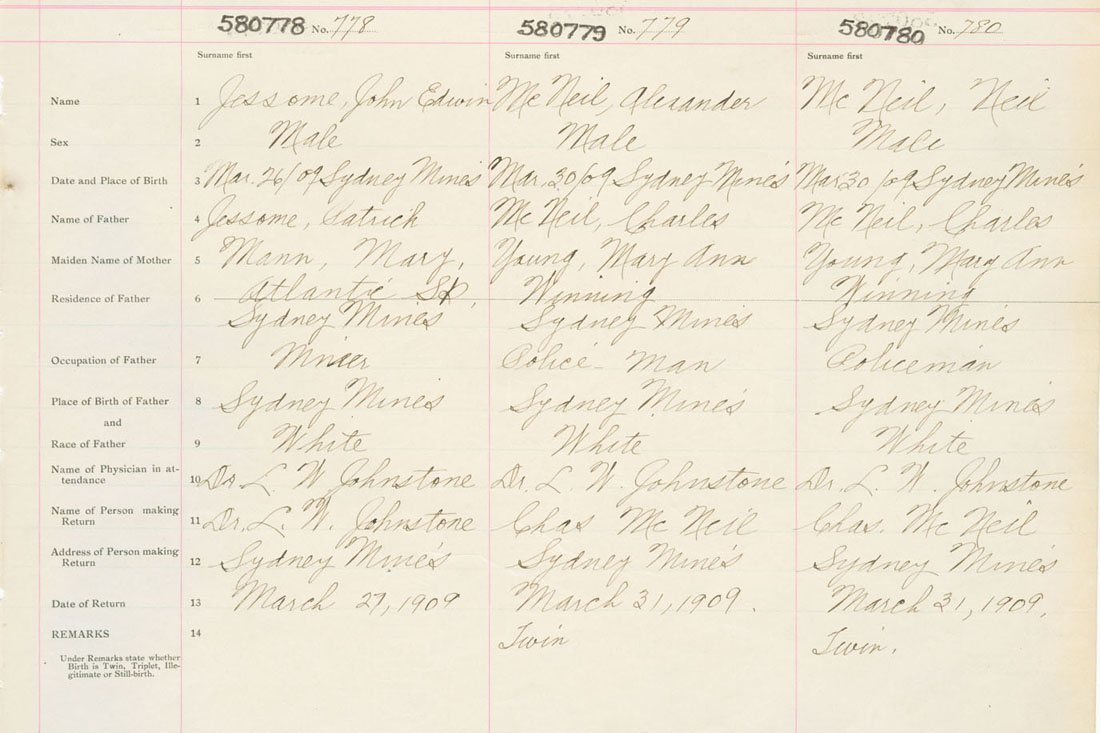 580778 No. 778 580779 No. 779 580780 No. 780
Surname first Surname first Surname first
Name 1 Jessome, John Edwin Mc Neil, Alexander Mc Neil, Neil
Sex 2 Male Male Male
Date and Place of Birth 3 Mar. 26/09 Sydney Mines Mar. 30/09 Sydney Mines Mar 30/09 Sydney Mines
Name of Father 4 Jessome, Patrick Mc Neil, Charles Mc Neil, Charles
Maiden Name of Mother 5 Mann, Mary, Young, Mary Ann Young, Mary Ann
Residence of Father 6 Atlantic St, Winning Winning
Sydney Mines Sydney Mines Sydney Mines
Occupation of Father 7 Miner Police-man Policeman
Place of Birth of Father 8 Sydney Mines Sydney Mines Sydney Mines
and
Race of Father 9 White White White
Name of Physician in at-
tendance 10 Dr. L. W Johnstone Dr. L. W. Johnstone Dr. L. W. Johnstone
Name of Person making
Return 11 Dr. L. W. Johnstone Chas Mc Neil Chas. Mc Neil
Address of Person making
Return 12 Sydney Mines Sydney Mines Sydney Mines
Date of Return 13 March 27, 1909 March 31, 1909. March 31, 1909.
REMARKS 14 Twin Twin.
Under Remarks state whether
Birth is Twin, Triplet, Ille-
gitimate or Still-birth.